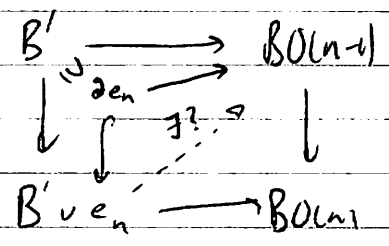 B' BO(n-1)
∪
∂e_n
∃?
B' ∪ e_n BO(n)